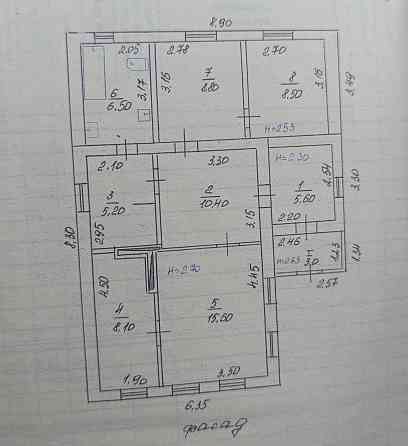 8.90
2.05
2.78
2.70
6
6.50
3.17
3.16
7
8.80
8
8.50
3.16
3.49
н=2.53
2.10
3.30
н=2.30
3
5.20
2
10.40
1
5.60
2.54
3.30
2.95
3.15
2.20
8.30
2.46
I
3.0
1.23
1.34
н=2.70
2.57
4.50
4
8.10
5
15.60
4.45
1.90
3.50
6.35
фасад